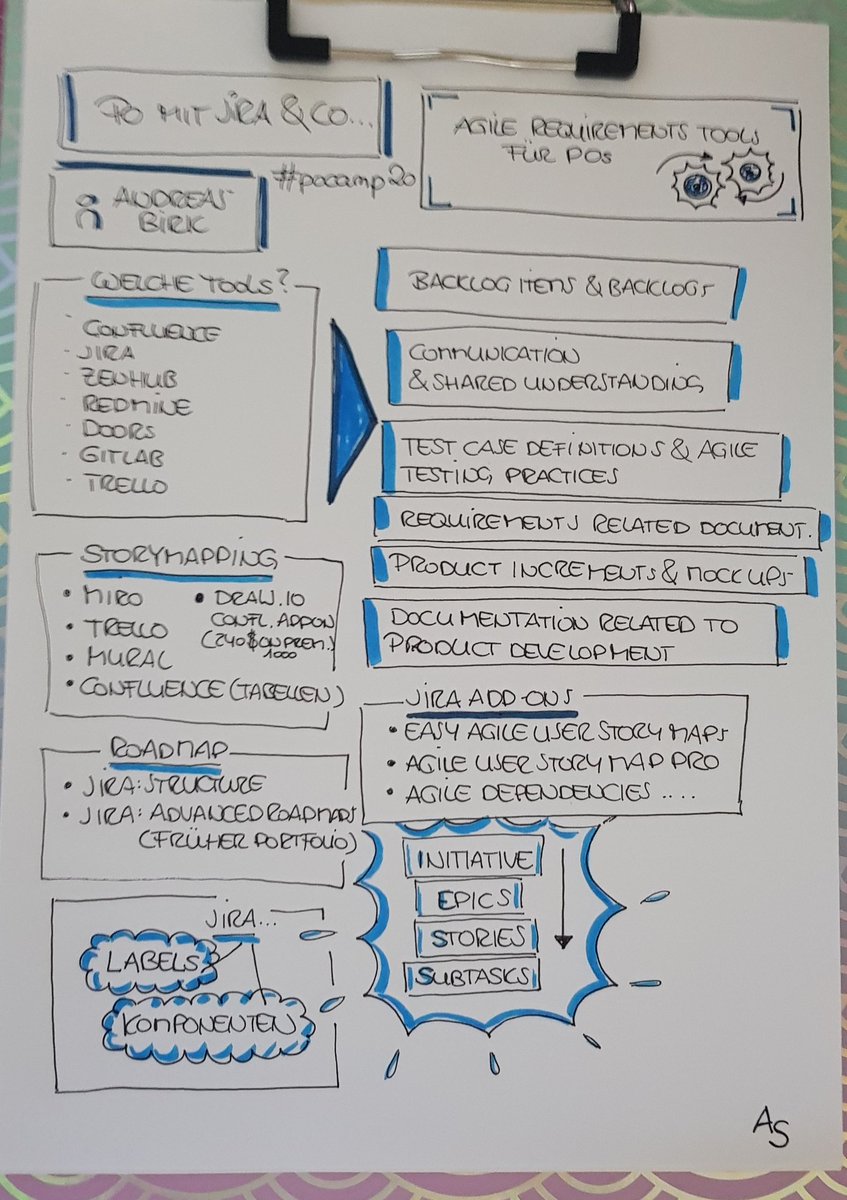 PO MIT JIRA & CO...
#pocamp20
ANDREAS
BIRK
AGILE REQUIREMENTS TOOLS
FÜR POs
WELCHE TOOLS?
- CONFLUENCE
- JIRA
- ZENHUB
- REDMINE
- DOORS
- GITLAB
- TRELLO
BACKLOG ITEMS & BACKLOGS
COMMUNICATION
& SHARED UNDERSTANDING
TEST CASE DEFINITIONS & AGILE
TESTING PRACTICES
REQUIREMENTS RELATED DOCUMENT.
PRODUCT INCREMENTS & MOCK UPS
DOCUMENTATION RELATED TO
PRODUCT DEVELOPMENT
STORYMAPPING
• MIRO
• TRELLO
• MURAL
• CONFLUENCE (TABELLEN)
• DRAW.IO
CONFL. ADDON
(240$ ON PREM.)
1000
JIRA ADD-ONS
• EASY AGILE USER STORY MAPS
• AGILE USER STORY MAP PRO
• AGILE DEPENDENCIES ....
ROADMAP
• JIRA: STRUCTURE
• JIRA: ADVANCED ROADMAPS
(FRÜHER PORTFOLIO)
INITIATIVE
EPICS
STORIES
SUBTASKS
JIRA...
LABELS
KOMPONENTEN
AS